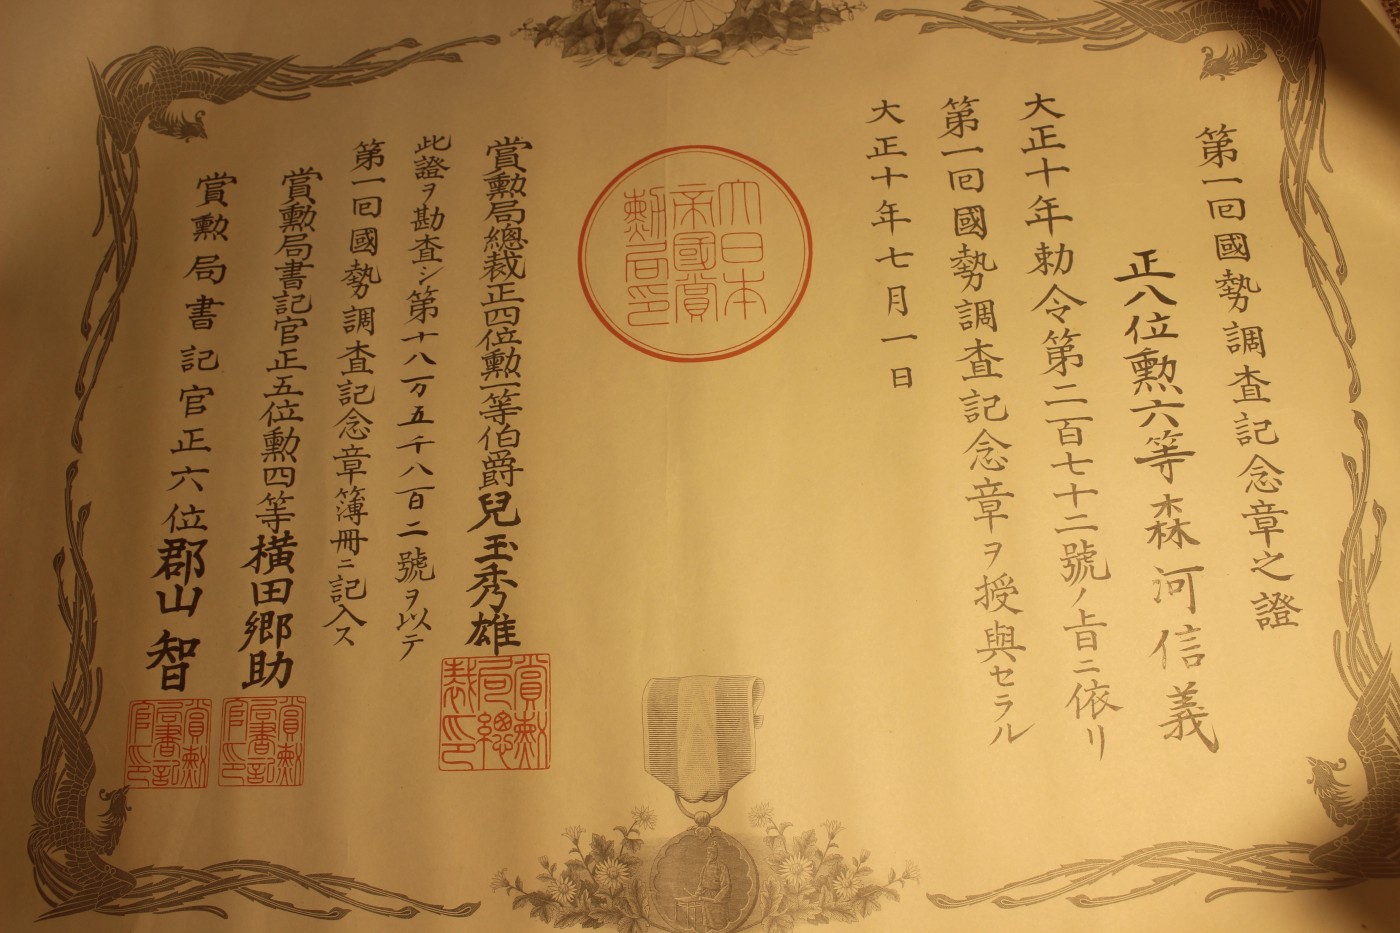 第一回國勢調査記念章之證
正八位勲六等森河信義
大正十年勅令第二百七十二號ノ旨ニ依リ
第一回國勢調査記念章ヲ授與セラル
大正十年七月一日
大日本
帝國賞
勲局印
賞勲局總裁正四位勲一等伯爵兒玉秀雄
賞勲
局總
裁印
此證ヲ勘査シ第十八万五千八百二號ヲ以テ
第一回國勢調査記念章簿冊ニ記入ス
賞勲局書記官正五位勲四等横田郷助
賞勲
局書記
官印
賞勲局書記官正六位郡山智
賞勲
局書記
官印